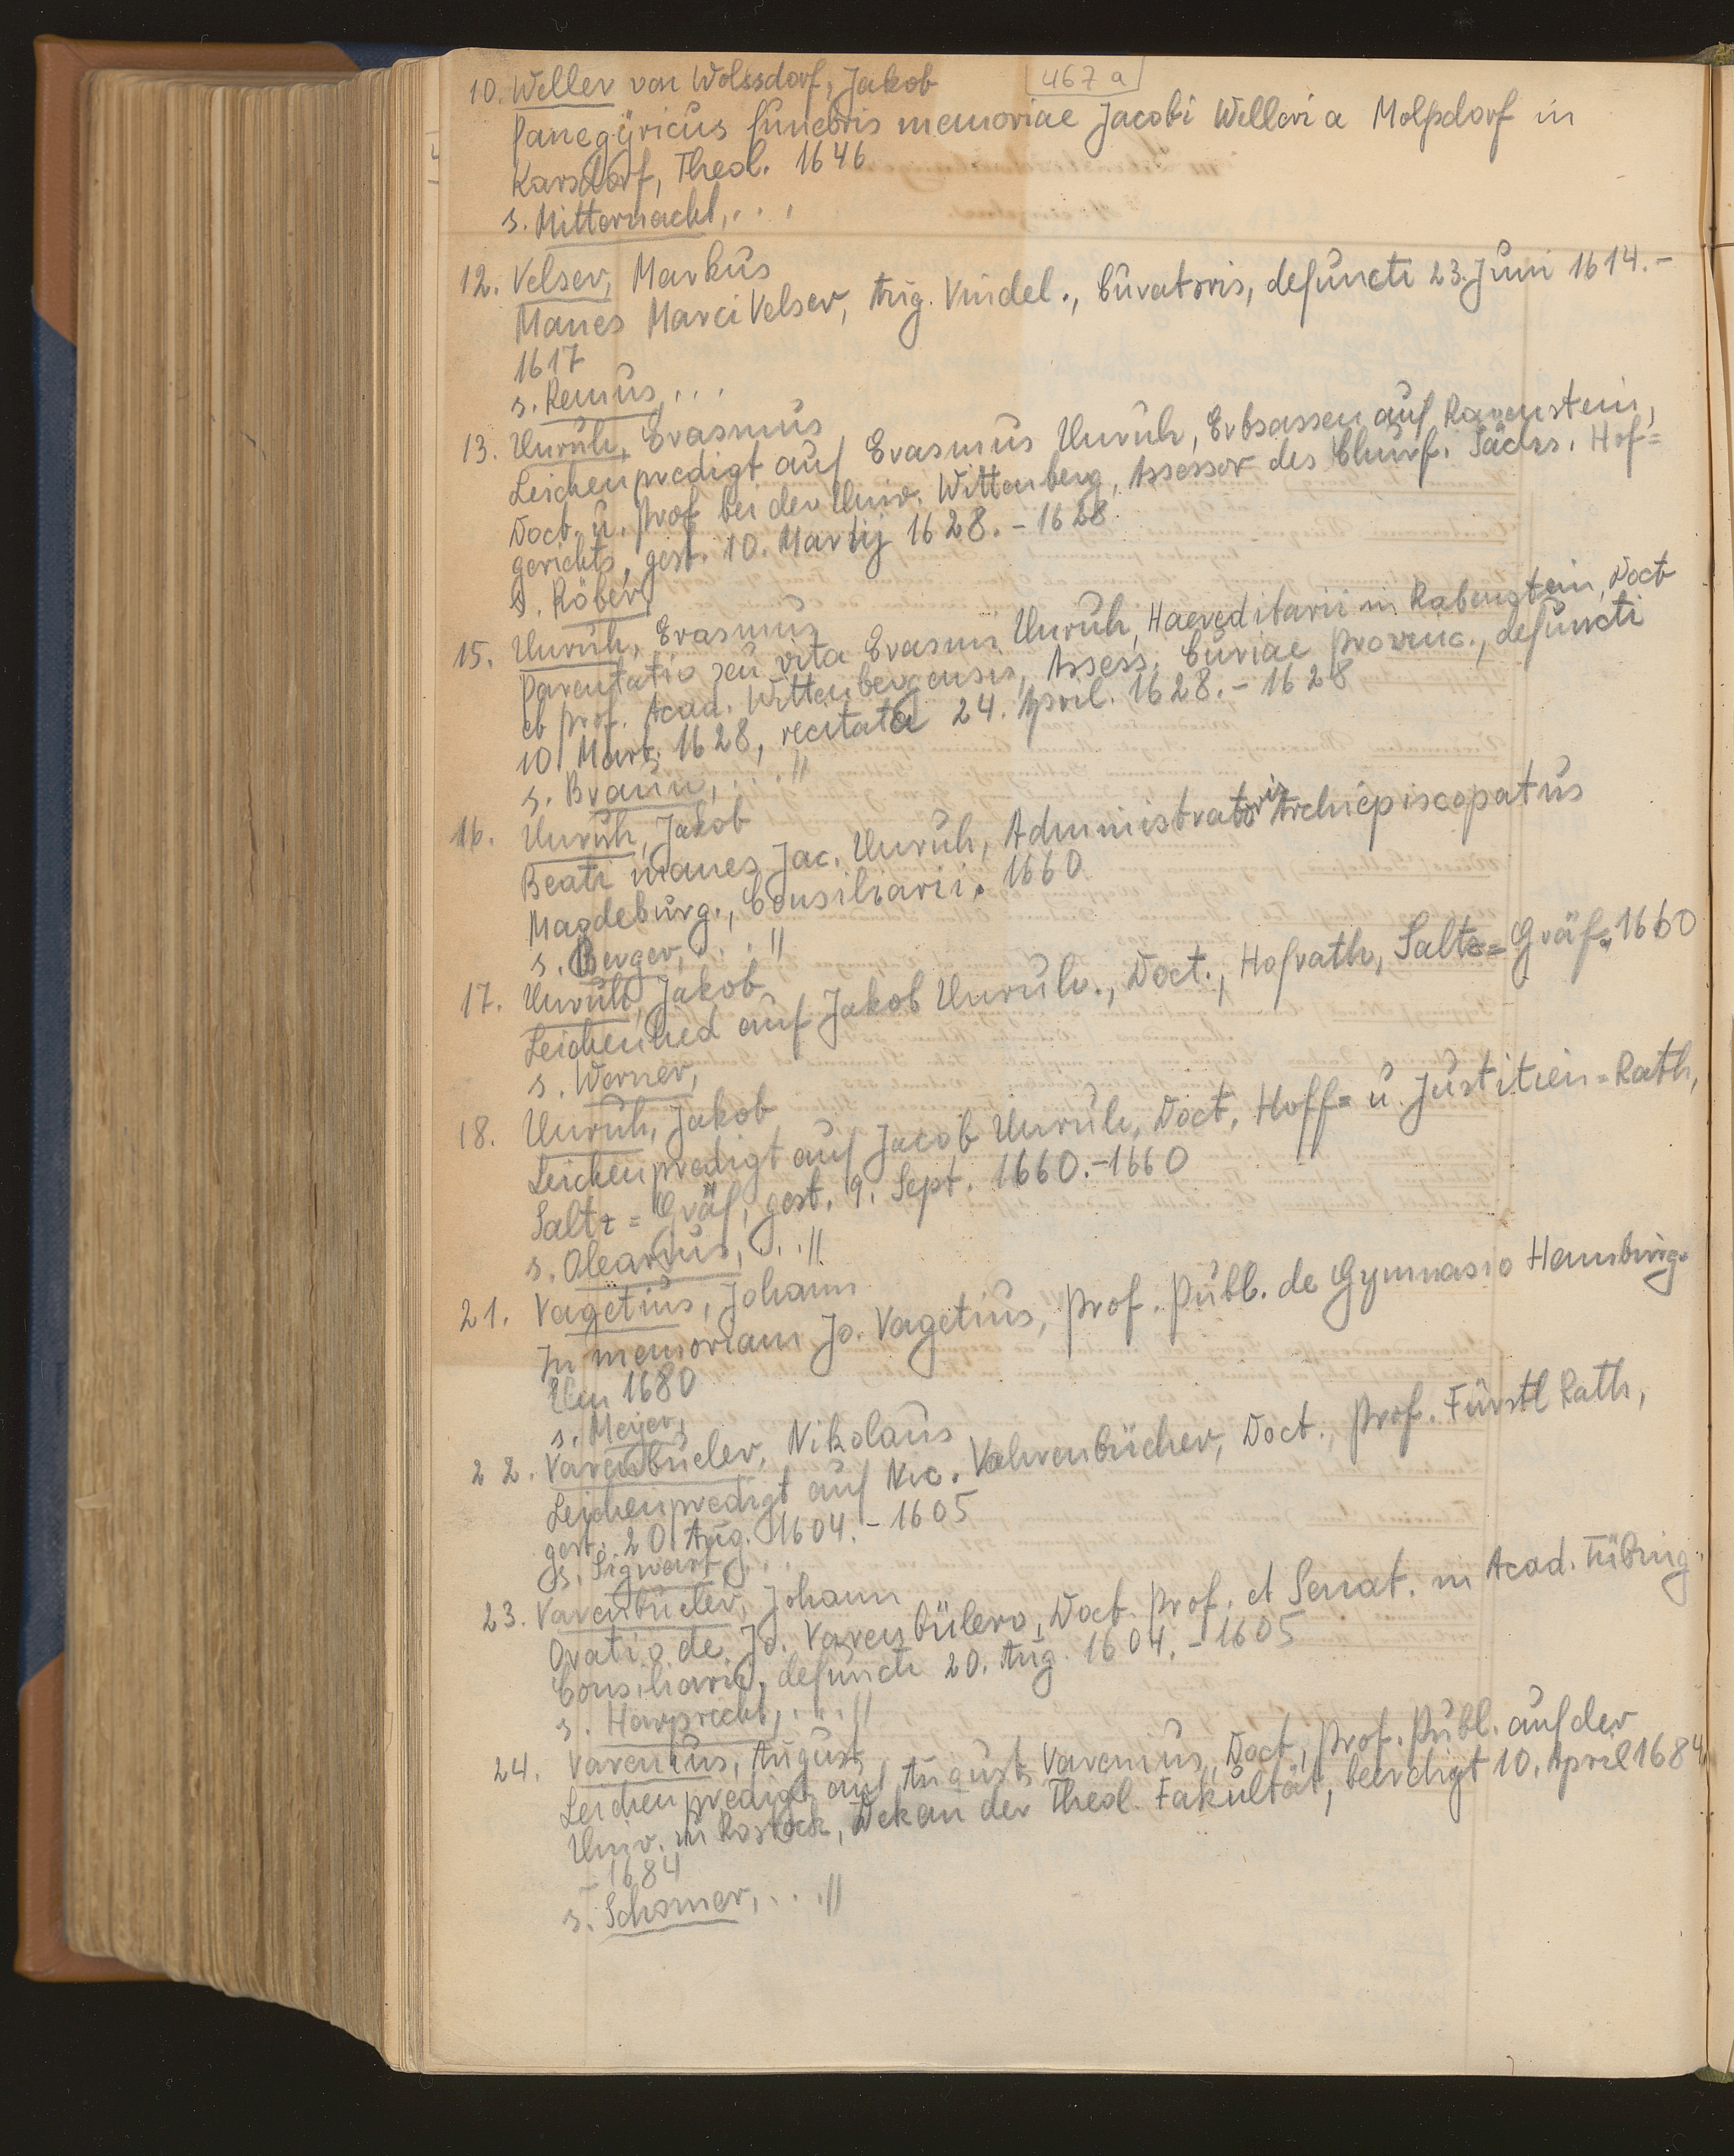 467 a
10. Weller von Wolssdorf, Jakob
Panegÿricus funebris memoriae Jacobi Welleri a Molssdorf in
Karsdorf, Theol. 1646
s. Mitternacht, . . ,
12. Velser, Markus
Manes Marci Velser, Aug. Vindel., Curatoris, defuncti 23. Juni 1614.-
1617
s. Remus, . . .
13. Unruh, Erasmus
Leichenpredigt auf Erasmus Unruh, Erbsassen auf Ravenstein,
Doct. u. Prof bei der Univ. Wittenberg, Assessor des Churf. Sächs. Hof=
gerichts, gest. 10. Martij 1628. - 1628
s. Röber,
15. Unruh, Erasmus
Parentatio seu vita Erasmi Unruh, Haereditarii in Rabenstein, Doct
et Prof. Acad. Wittenbergensis, Assess. Curiae Provinc., defuncti
10 Mart. 1628, recitata 24. April. 1628. - 1628
s. Braun, . . . //
16. Unruh, Jakob
Beati manes Jac. Unruh, Administratoris Archiepiscopatus
Magdeburg., Consiliarii. 1660
s. Berger, . . . //
17. Unruh, Jakob
Leichenlied auf Jakob Unruh., Doct., Hofrath, Saltz= Gräf. 1660
s. Werner,
18. Unruh, Jakob
Leichenpredigt auf Jacob Unruh, Doct, Hoff= u. Justitien=Rath,
Saltz= Gräf, gest. 9. Sept. 1660.-1660
s. Olearius, . . . //
21. Vagetius, Johann
In memoriam Jo. Vagetius, Prof. Publ. de Gymnasio Hamburg.
Um 1680
s. Meyer,
22. Varenbüeler, Nikolaus
Leichenpredigt auf Nic. Vahrenbücher, Doct., Prof. Fürstl Rath,
gest. 20. Aug. 1604. - 1605
s. Sigwart, . . .
23. Varenbüeler, Johann
Oratio de Jo. Varenbülero, Doct. Prof. et Senat. in Acad. Tübing.
Consiliario, defuncti 20. Aug. 1604. - 1605
s. Harprecht, . . . //
24. Varenius, August
Leichenpredigt auf August Varenius, Doct, Prof. Publ. auf der
Univ. in Rostock, Dekan der Theol. Fakultät, beerdigt 10. April 1684
- 1684
s. Schomer, . . . //